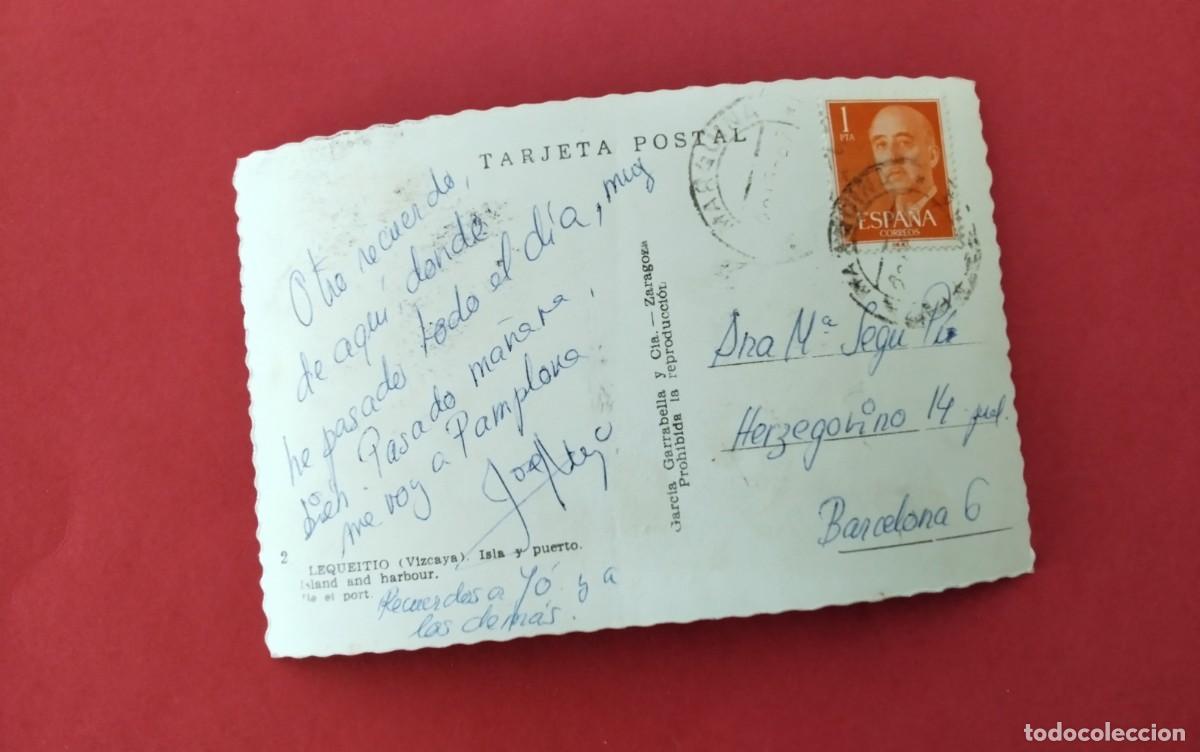 TARJETA POSTAL
Otro recuerdo,
de aquí, donde
he pasado todo el día, muy
bien. Pasado mañana,
me voy a Pamplona
2 LEQUEITIO (Vizcaya). Isla y puerto.
Island and harbour.
Ile et port.
Recuerdos a Yó y a
los demás.
García Garrabella y Cía. — Zaragoza
Prohibida la reproducción
1
PTA
ESPAÑA
CORREOS
Sra Mª Segu
Herzegovino 14
Barcelona 6
todocoleccion